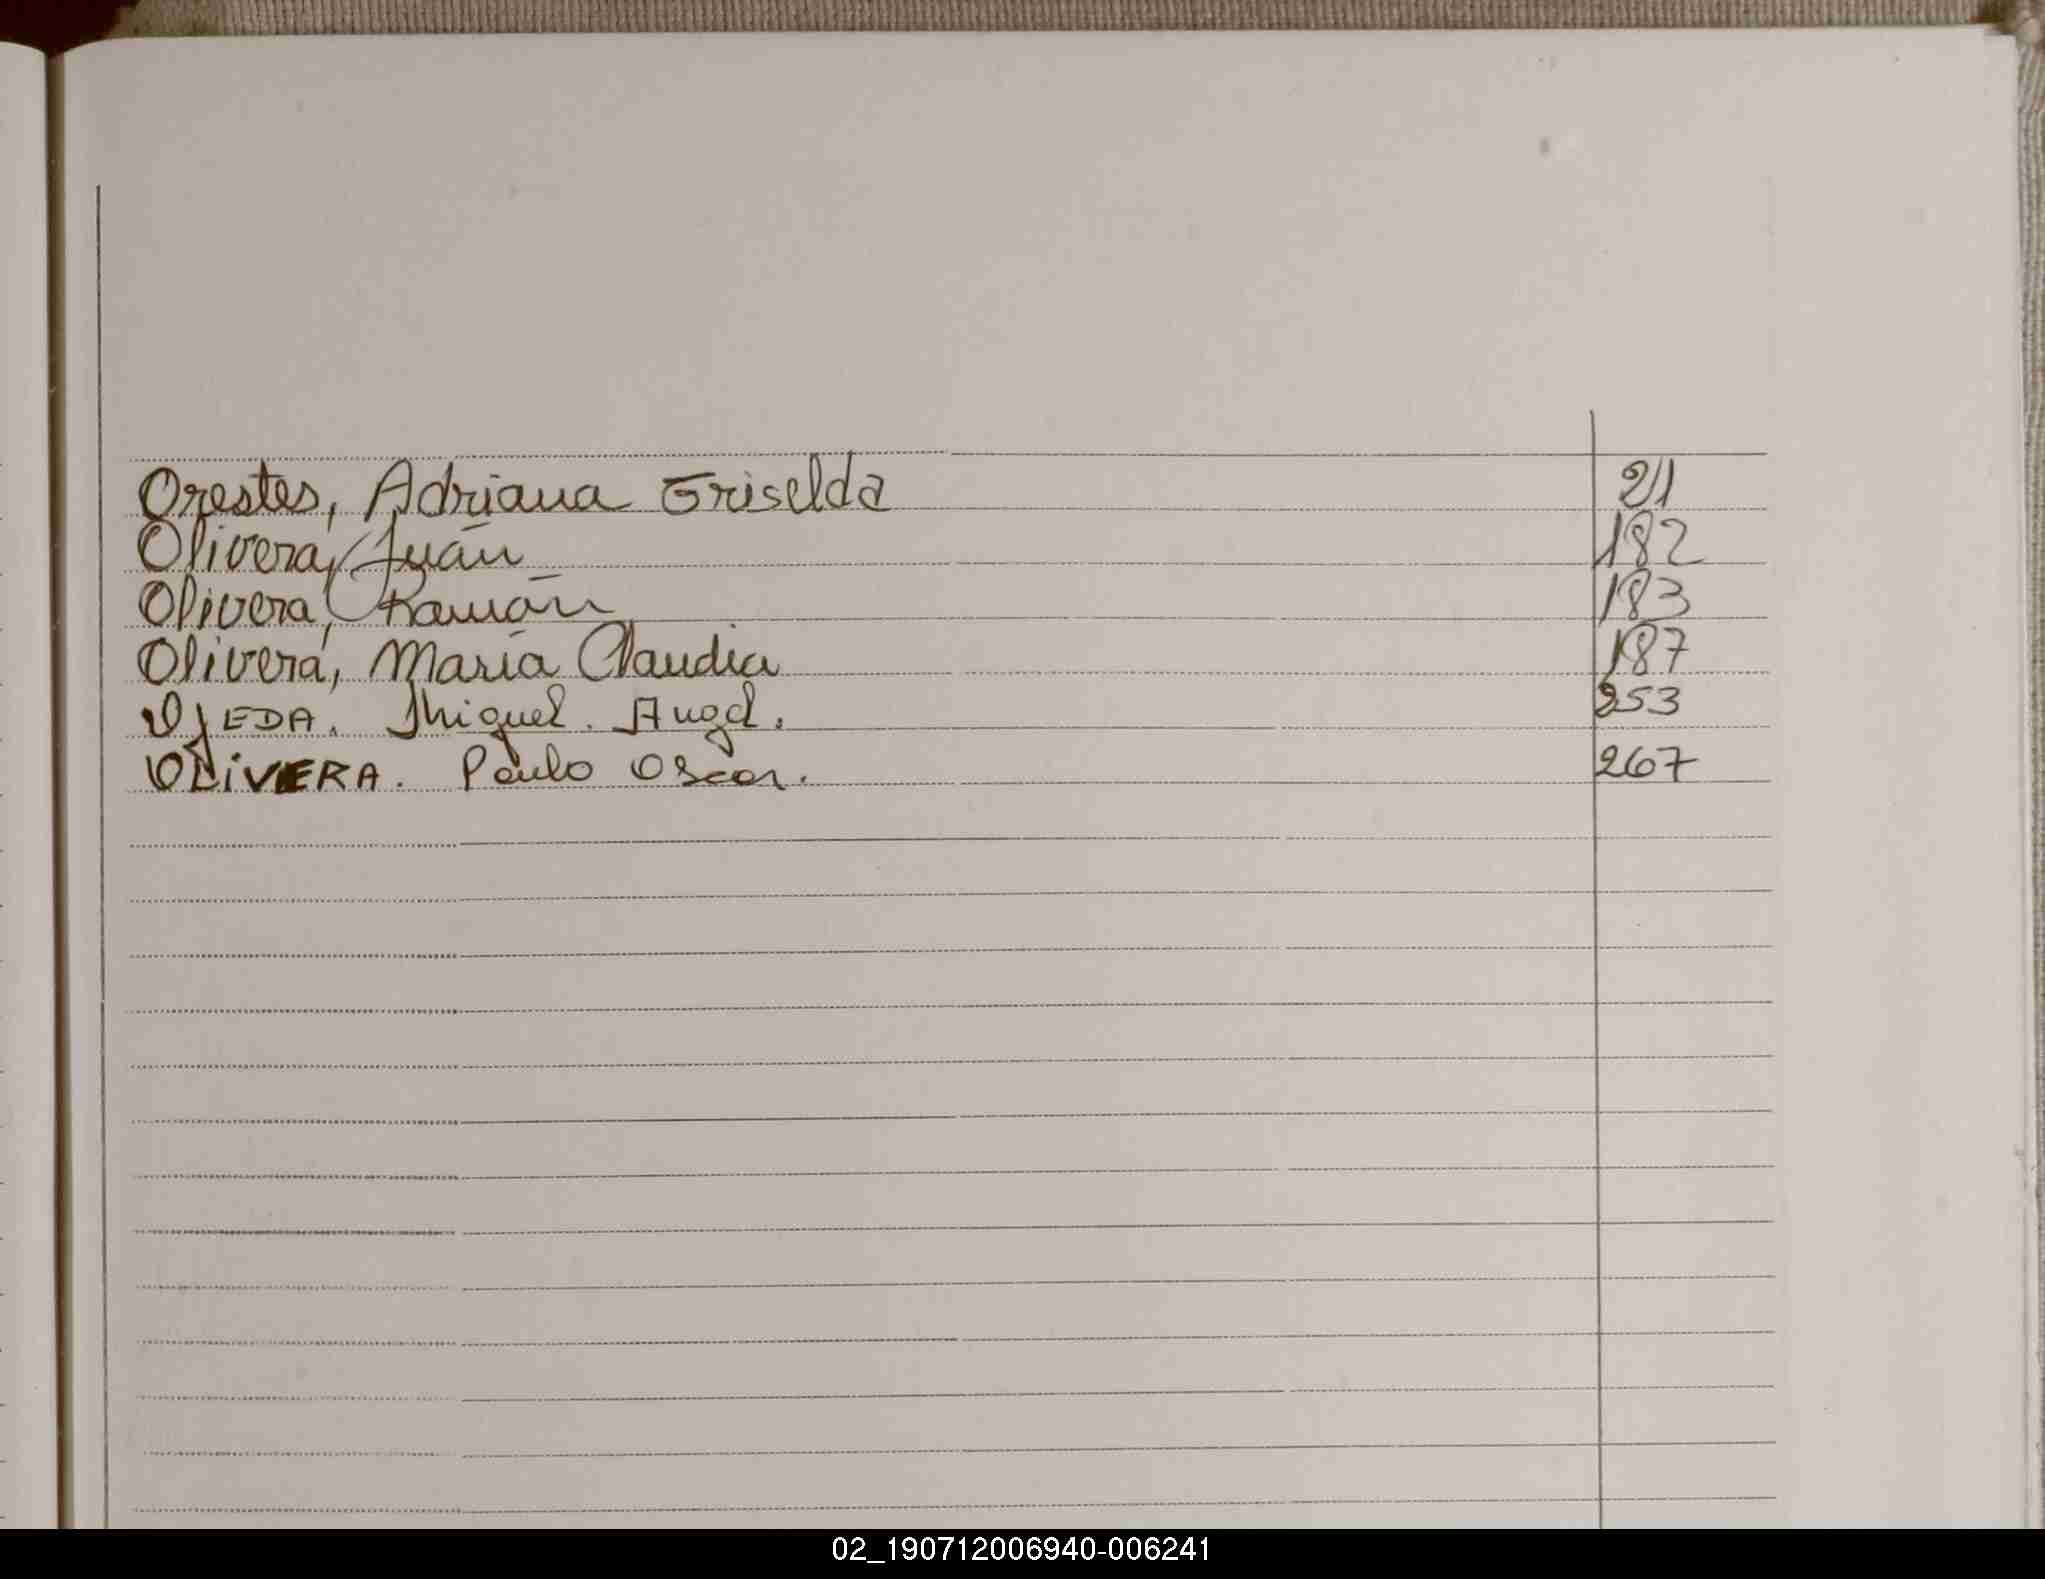 Orestes, Adriana Griselda 21
Olivera, Juán 182
Olivera, Ramón 183
Olivera, María Claudia 187
OJEDA. Miguel. Angel. 253
OLIVERA. Paulo Oscar. 267
02_190712006940-006241